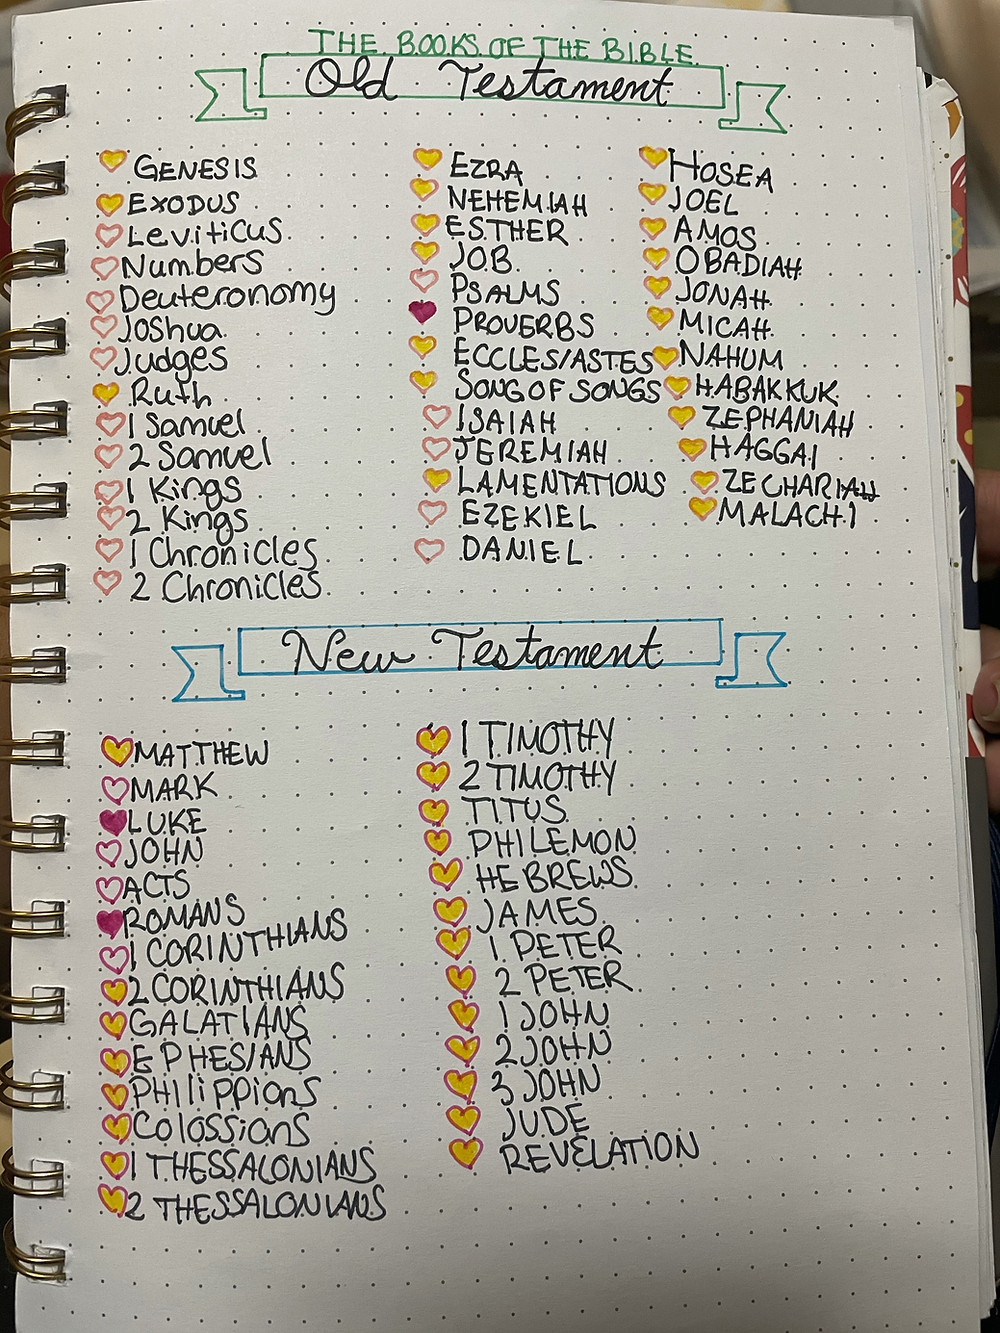 THE BOOKS OF THE BIBLE
Old Testament
GENESIS
EXODUS
Leviticus
Numbers
Deuteronomy
Joshua
Judges
Ruth
1 Samuel
2 Samuel
1 Kings
2 Kings
1 Chronicles
2 Chronicles
EZRA
NEHEMIAH
ESTHER
JOB
PSALMS
PROVERBS
ECCLESIASTES
SONG OF SONGS
ISAIAH
JEREMIAH
LAMENTATIONS
EZEKIEL
DANIEL
HOSEA
JOEL
AMOS
OBADIAH
JONAH
MICAH
NAHUM
HABAKKUK
ZEPHANIAH
HAGGAI
ZECHARIAH
MALACHI
New Testament
MATTHEW
MARK
LUKE
JOHN
ACTS
ROMANS
1 CORINTHIANS
2 CORINTHIANS
GALATIANS
EPHESIANS
PHIlippians
Colossians
1 THESSALONIANS
2 THESSALONIANS
1 TIMOTHY
2 TIMOTHY
TITUS
PHILEMON
HEBREWS
JAMES
1 PETER
2 PETER
1 JOHN
2 JOHN
3 JOHN
JUDE
REVELATION